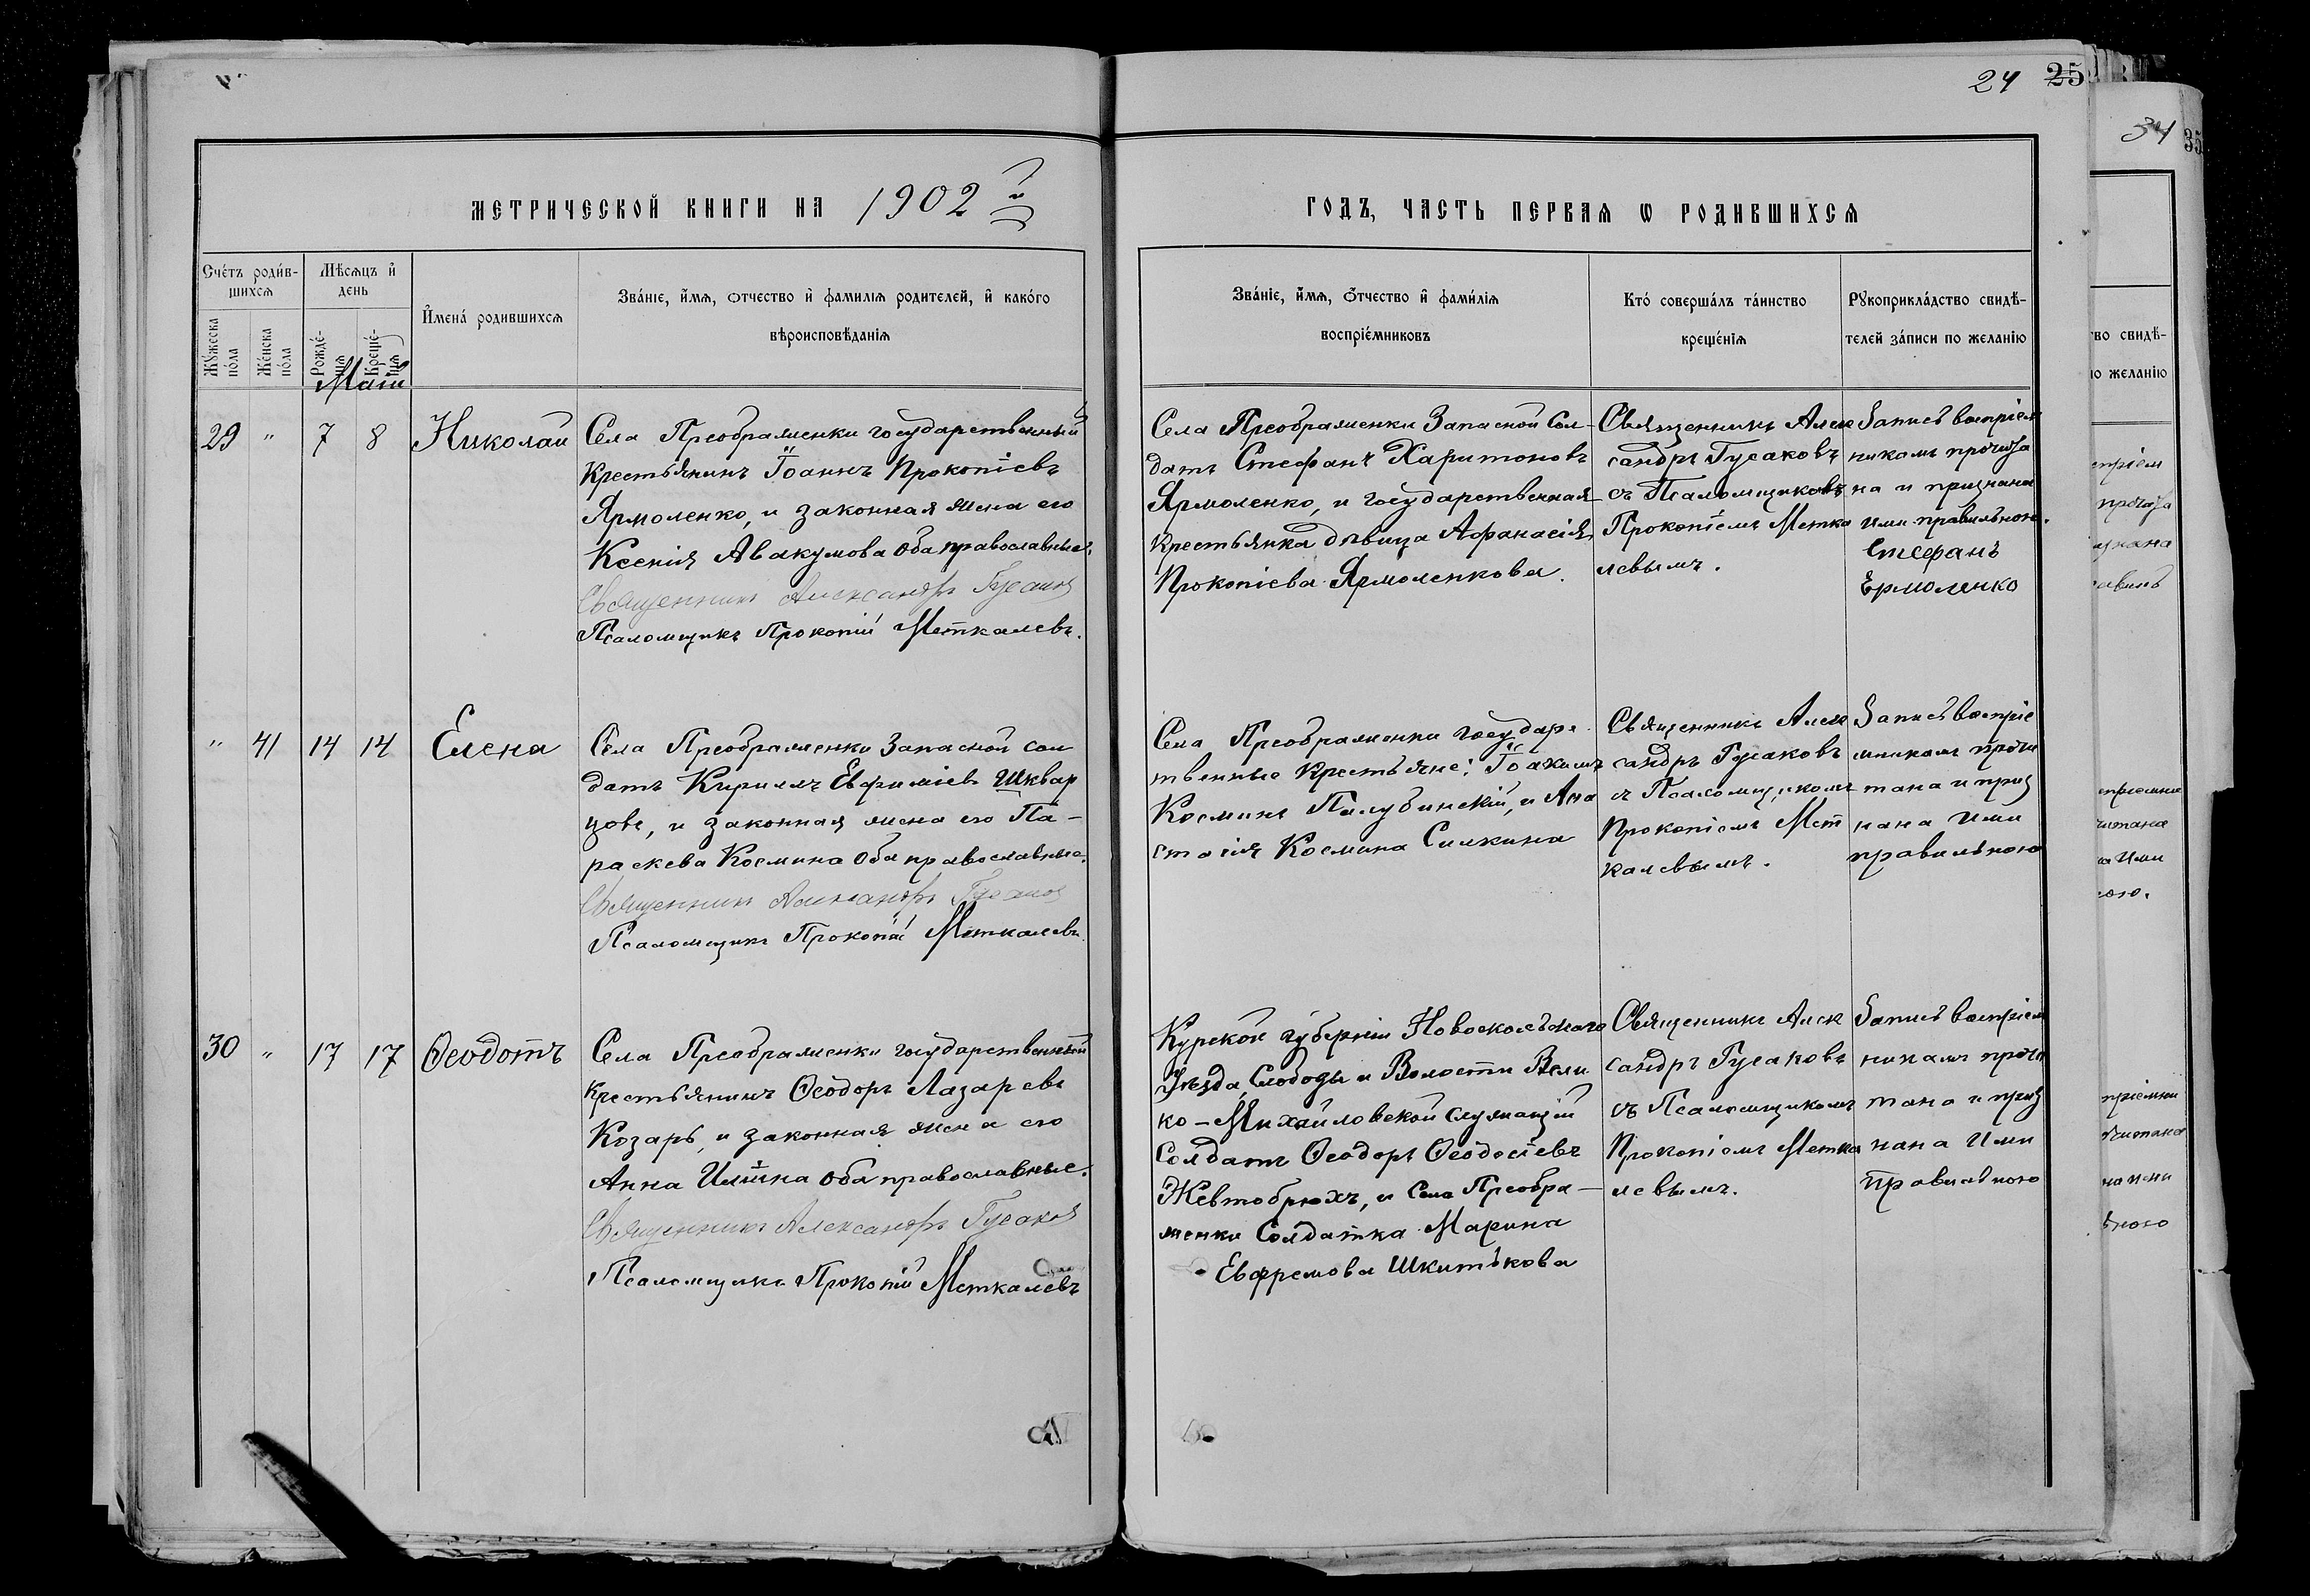 24 25
34 35
МЕТРИЧЕСКОЙ КНИГИ НА 1902й
ГОДЪ, ЧАСТЬ ПЕРВАЯ Ѡ РОДИВШИХСЯ
Счетъ родив-
шихся
Мѣсяцъ и
день
Мужеска
пола
Женска
пола
Рожде-
нія
Креще-
нія
Имена родившихся
Званіе, имя, отчество и фамилія родителей, и какого
вѣроисповѣданія
Званіе, имя, отчество и фамилія
воспріемниковъ
Кто совершалъ таинство
крещенія
Рукоприкладство свидѣ-
телей записи по желанію
Май
29 " 7 8 Николай
Села Преображенки государственный
Крестьянинъ Іоаннъ Прокопіевъ
Ярмоленко, и законная жена его
Ксенія Авакумова оба православные.
Священникъ Александръ Гусаковъ
Псаломщикъ Прокопій Меткалевъ.
Села Преображенки Запасной Сол-
датъ Стефанъ Харитоновъ
Ярмоленко, и государственная
Крестьянка дѣвица Афанасія
Прокопіева Ярмоленкова.
Священникъ Алек
сандръ Гусаковъ
съ Псаломщикомъ
Прокопіемъ Метка
левымъ.
Запись воспріем
никомъ прочита
на и признана
ими правильною.
Стефанъ
Ермоленко
" 41 14 14 Елена
Села Преображенки Запасной сол
датъ Кириллъ Евфиміевъ Шквар
цовъ, и законная жена его Па-
раскева Космина оба православные.
Священникъ Александръ Гусаковъ
Псаломщикъ Прокопій Меткалевъ.
Села Преображенки государс
твенные Крестьяне: Іоакимъ
Косминъ Палубинскій, и Ана
стасія Космина Силкина
Священникъ Алек
сандръ Гусаковъ
съ Псаломщикомъ
Прокопіемъ Мет
калевымъ.
Запись воспріе
мникамъ прочи
тана и приз
нана ими
правильною
30 " 17 17 Ѳеодотъ
Села Преображенки государственный
крестьянинъ Ѳеодоръ Лазаревъ
Козарь, и законная жена его
Анна Ильина оба православные.
Священникъ Александръ Гусаковъ
Псаломщикъ Прокопій Меткалевъ
Курской губерніи Новооскольскаго
Уѣзда, Слободы и Волости Вели
ко-Михайловской служащій
Солдатъ Ѳеодоръ Ѳеодосіевъ
Жевтобрюхъ, и Села Преобра-
женки Солдатка Марина
Евфремова Шкитькова
Священникъ Алек
сандръ Гусаковъ
съ Псаломщикомъ
Прокопіемъ Метка
левымъ.
Запись воспріем
никамъ прочи
тана и приз
нана ими
правильною